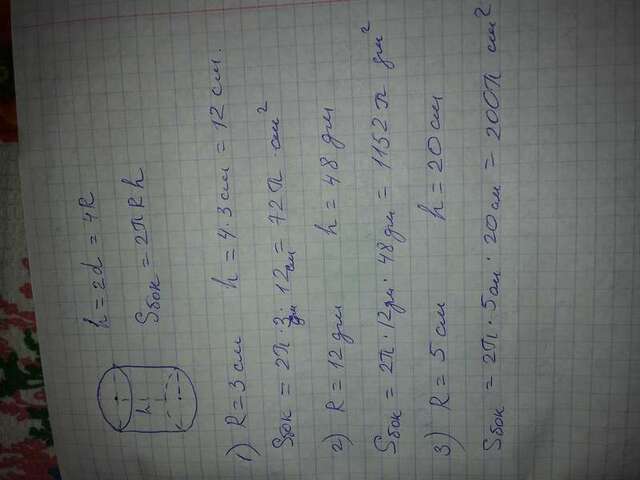 h = 2d = 4R
h
Sбок = 2πRh
1) R = 3 см h = 4·3 см = 12 см.
Sбок = 2π · 3 дм · 12 см = 72π · см²
2) R = 12 дм h = 48 дм
Sбок = 2π · 12 дм · 48 дм = 1152 π дм²
3) R = 5 см h = 20 см
Sбок = 2π · 5 см · 20 см = 200π см²